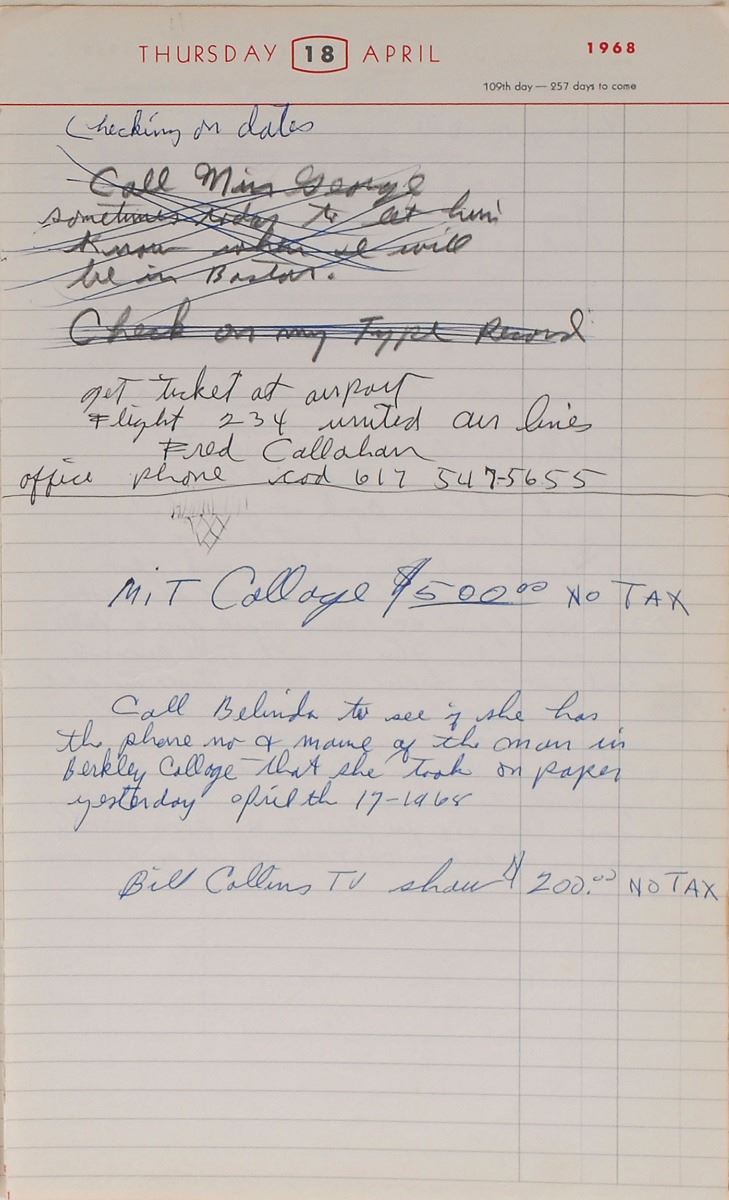 THURSDAY 18 APRIL 1968
109th day — 257 days to come
Checking on dates
Call Min George
sometimes today to let him
Know when I will
be in Boston.
Check on my Type Record
get ticket at airport
Flight 234 united air lines
Fred Callahan
office phone cod 617 547-5655
MiT Collage $500.00 NO TAX
Call Belinda to see if she has
the phone no & mame of the man in
Berkley Collage that she took on paper
yesterday april th 17-1968
Bill Collins TV show $200.00 NO TAX